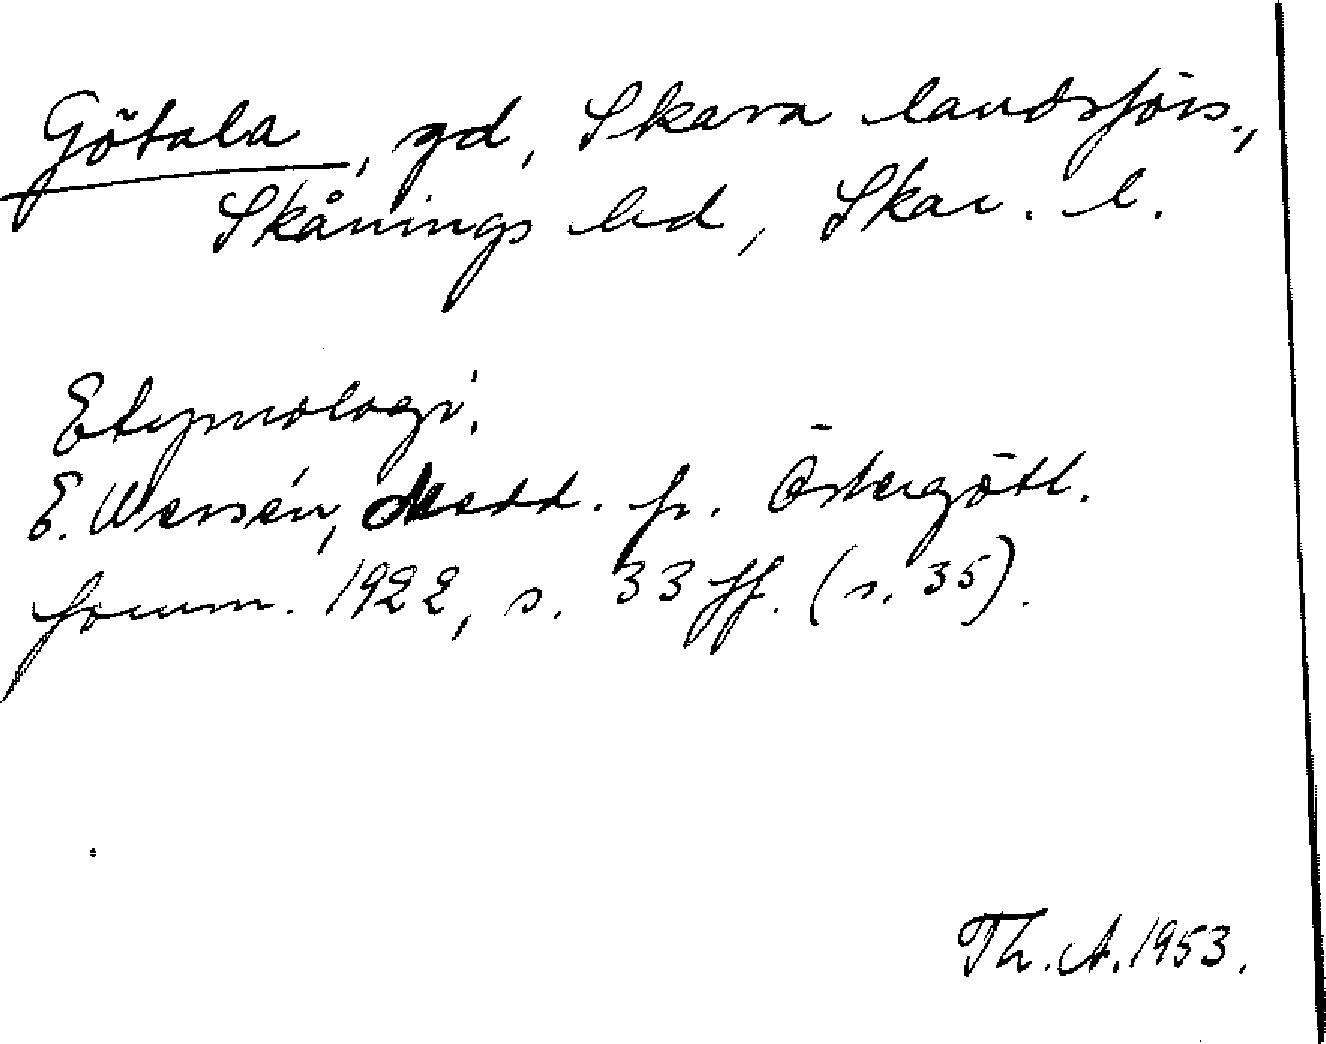 Götala, gd, Skara landsförs.,
Skånings hd, Skar. l.
Etymologi.
E. Wessén, Medd. fr. Östergötl.
fornm. 1922, s. 33 ff. (s. 35).
Th. A. 1953.